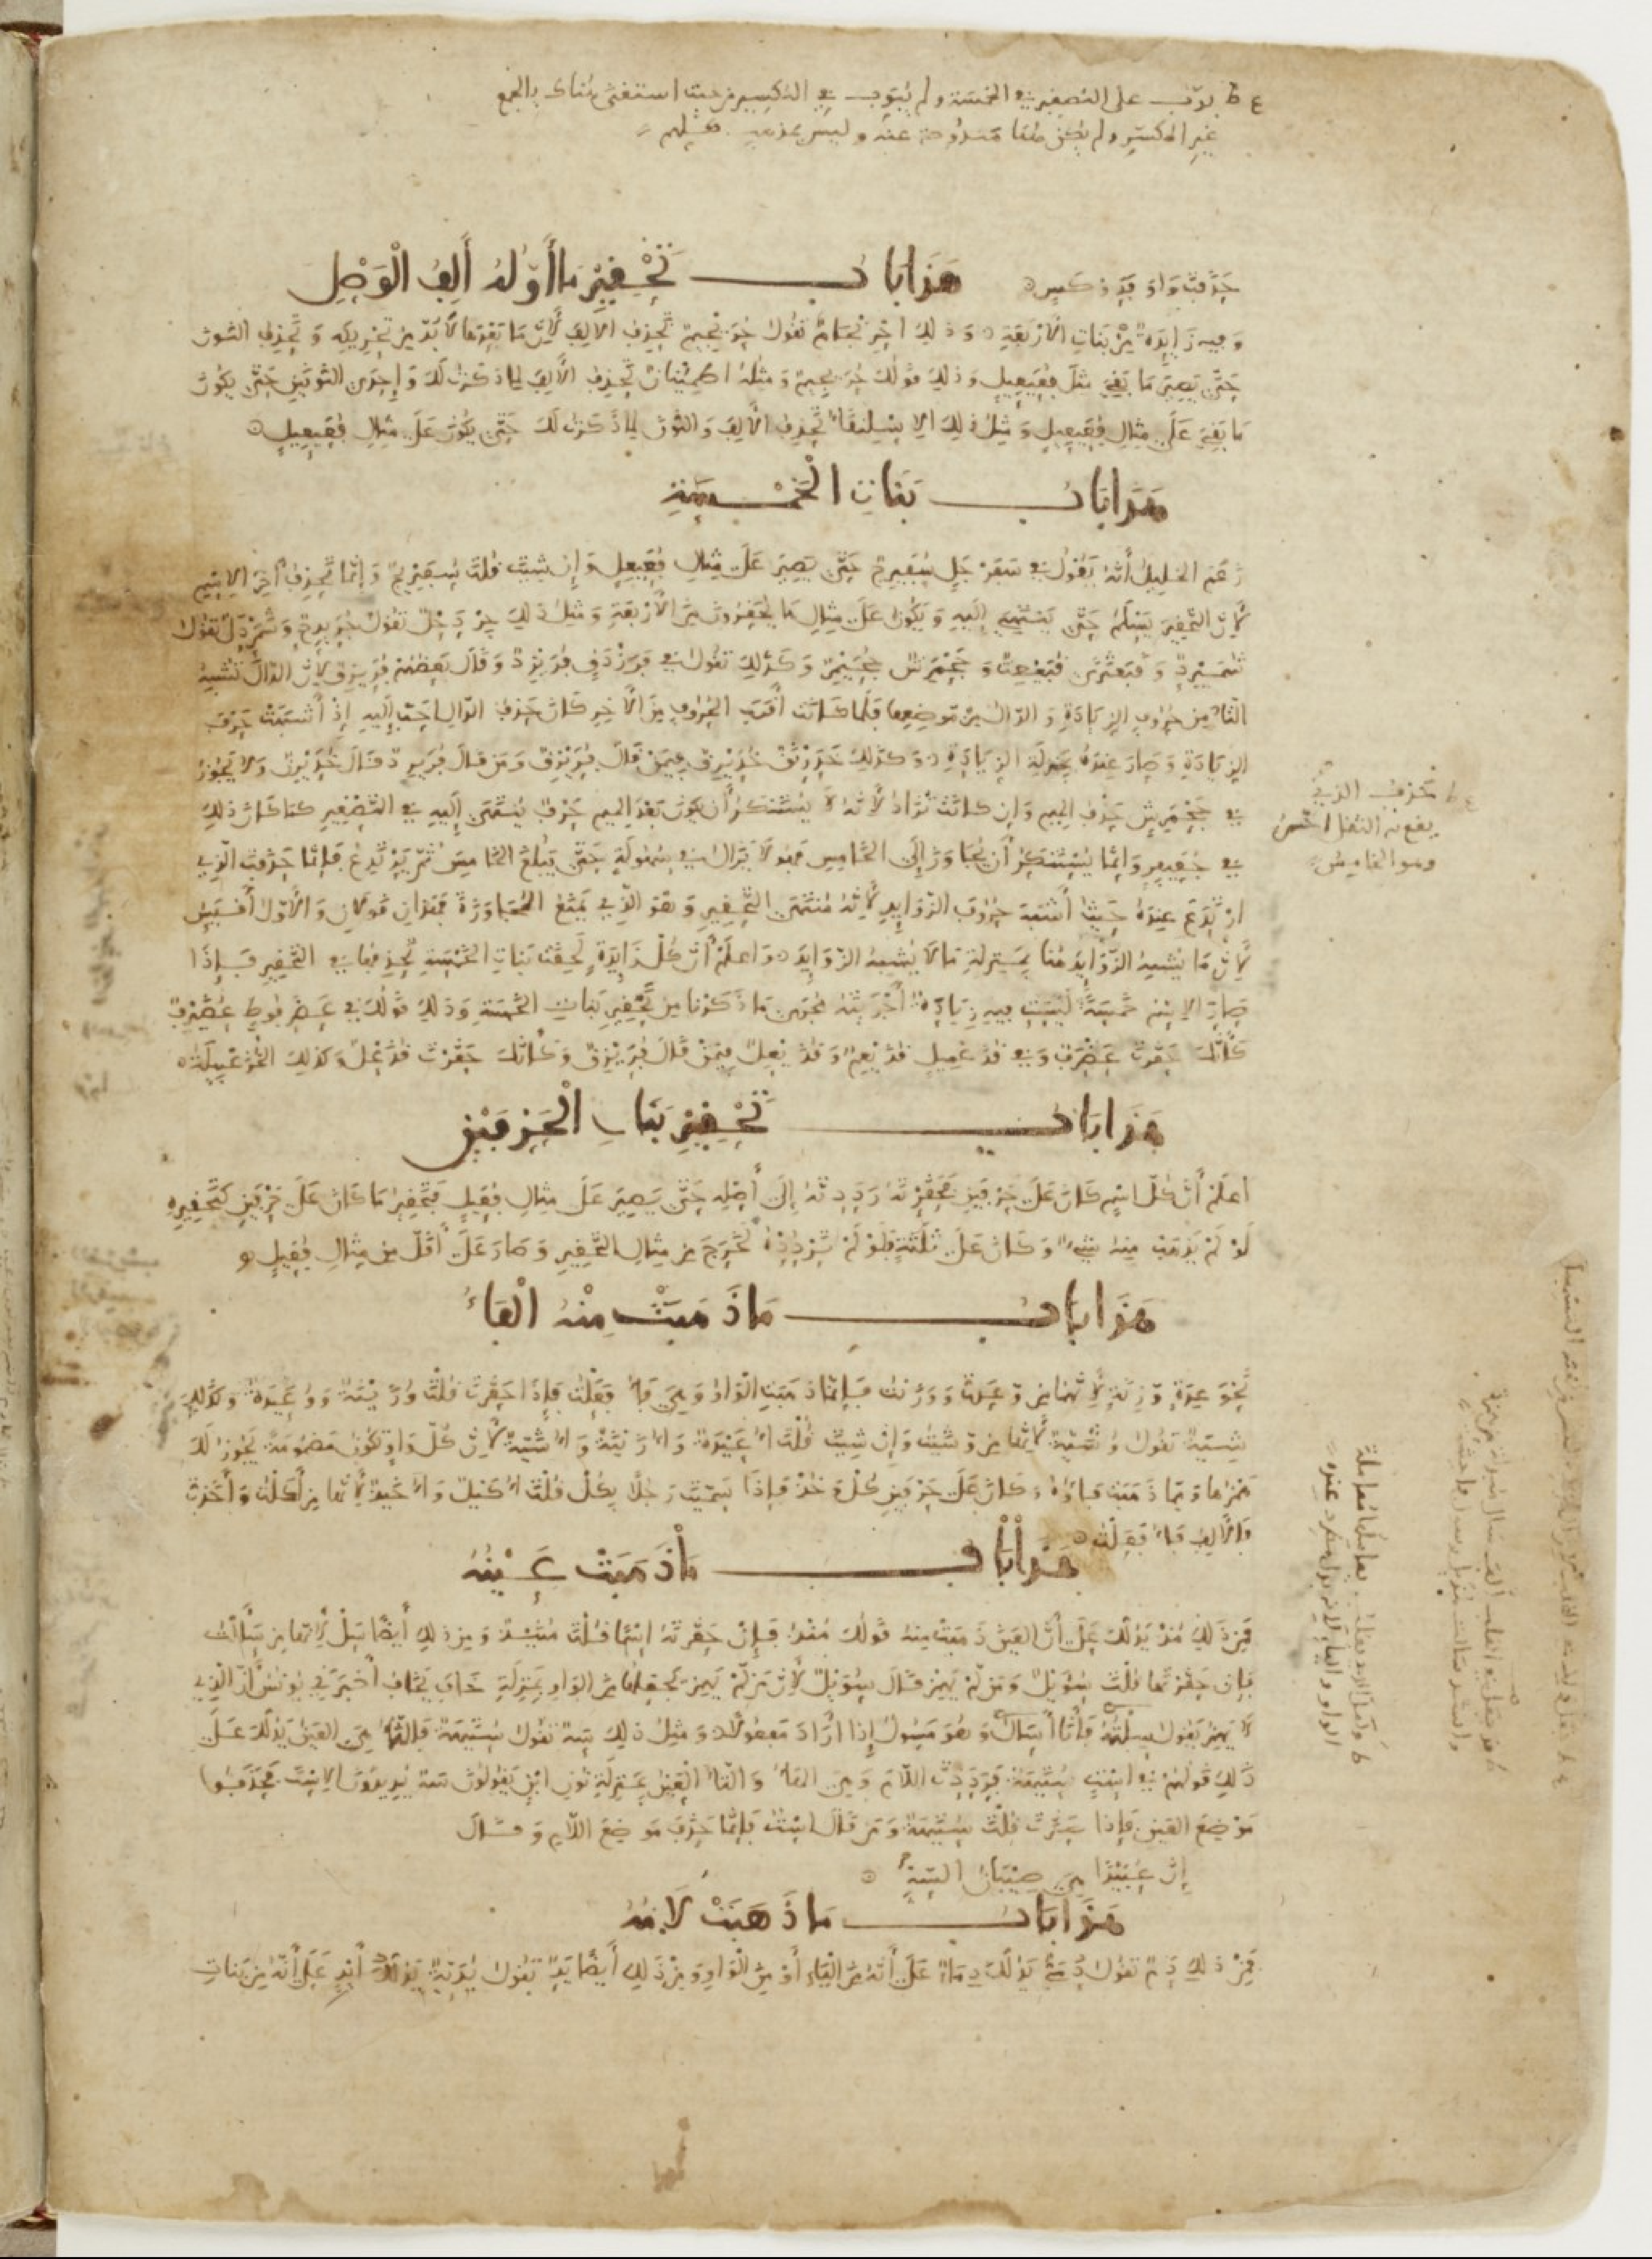 بوّب على التصغير في الخمسة ولم يبوب في التكسير من حيث استغنى هناك بالجمع
غير المكسر ولم يكن هنا مندوحة عنه وليس
حَذَفْتَ وَاوَ فَدَوْكَسٍ هَذَا بَابُ تَحْقِيرِ مَا أَوَّلُهُ أَلِفُ الْوَصْلِ
وَفِيهِ زَايِدَةٌ مِنْ بَنَاتِ الْأَرْبَعَةِ وَذَلِكَ احْرِنْجَامٌ تَقُولُ حُرَيْجِيمٌ تَحْذِفُ الْأَلِفَ لِأَنَّ مَا بَعْدَهَا لَا بُدَّ مِنْ تَحْرِيكِهِ وَتَحْذِفُ النُّونَ
حَتَّى يَصِيرَ مَا بَقِيَ مِثْلَ فُعَيْعِيلٍ وَذَلِكَ قَوْلُكَ حُرَيْجِيمٌ وَمِثْلُهُ اطْمِئْنَانٌ تَحْذِفُ الْأَلِفَ لِمَا ذَكَرْتُ لَكَ وَإِحْدَى النُّونَيْنِ حَتَّى يَكُونَ
مَا بَقِيَ عَلَى مِثَالِ فُعَيْعِيلٍ وَمِثْلُ ذَلِكَ الِاسْلِنْقَاءُ تَحْذِفُ الْأَلِفَ وَالنُّونَ لِمَا ذَكَرْتُ لَكَ حَتَّى يَكُونَ عَلَى مِثَالِ فُعَيْعِيلٍ
هَذَا بَابُ بَنَاتِ الْخَمْسَةِ
زَعَمَ الْخَلِيلُ أَنَّهُ يَقُولُ فِي سَفَرْجَلٍ سُفَيْرِجٌ حَتَّى يَصِيرَ عَلَى مِثَالِ فُعَيْعِلٍ وَإِنْ شِئْتَ قُلْتَ سُفَيْرِيجٌ وَإِنَّمَا تَحْذِفُ آخِرَ الِاسْمِ
لِأَنَّ التَّحْقِيرَ يَسْلَمُ حَتَّى يَنْتَهِيَ إِلَيْهِ وَيَكُونُ عَلَى مِثَالِ مَا يُحَقِّرُونَ مِنَ الْأَرْبَعَةِ وَمِثْلُ ذَلِكَ جِرْدَحْلٌ تَقُولُ جُرَيْدِحٌ وَشَمَرْدَلٌ تَقُولُ
شُمَيْرِدٌ وَقَبَعْثَرَى قُبَيْعِثٌ وَجَحْمَرِشٌ جُحَيْمِرٌ وَكَذَلِكَ تَقُولُ فِي فَرَزْدَقٍ فُرَيْزِدٌ وَقَالَ بَعْضُهُمْ فُرَيْزِقٌ لِأَنَّ الدَّالَ تُشْبِهُ
التَّاءَ مِنْ حُرُوفِ الزِّيَادَةِ وَالدَّالُ مِنْ مَوْضِعِهَا فَلَمَّا كَانَتْ أَقْرَبَ الْحُرُوفِ مِنَ الْآخِرِ كَانَ حَذْفُ الدَّالِ أَحَبَّ إِلَيْهِ إِذْ أَشْبَهَتْ حَرْفَ
الزِّيَادَةِ وَصَارَ عِنْدَهُ بِمَنْزِلَةِ الزِّيَادَةِ وَكَذَلِكَ خَدَرْنَقٌ خُدَيْرِقٌ فِيمَنْ قَالَ فُرَيْزِقٌ وَمَنْ قَالَ فُرَيْزِدٌ قَالَ خُدَيْرِنٌ وَلَا يَجُوزُ
فِي جَحْمَرِشٍ حَذْفُ الْمِيمِ وَإِنْ كَانَتْ تُزَادُ لِأَنَّهُ لَا يُسْتَنْكَرُ أَنْ يَكُونَ بَعْدَ الْمِيمِ حَرْفٌ يُنْتَهَى إِلَيْهِ فِي التَّصْغِيرِ كَمَا كَانَ ذَلِكَ
فِي جُعَيْفِرٍ وَإِنَّمَا يُسْتَنْكَرُ أَنْ يُجَاوَزَ إِلَى الْخَامِسِ فَهُوَ لَا يَزَالُ فِي سُهُولَةٍ حَتَّى يَبْلُغَ الْخَامِسَ ثُمَّ يَرْتَدِعُ فَإِنَّمَا حَذَفَ الَّذِي
ارْتَدَعَ عِنْدَهُ حَيْثُ أَشْبَهَ حُرُوفَ الزَّوَايِدِ لِأَنَّهُ مُنْتَهَى التَّحْقِيرِ وَهُوَ الَّذِي يَمْنَعُ الْمُجَاوَزَةَ فَهَذَانِ قَوْلَانِ وَالْأَوَّلُ أَقْيَسُ
لِأَنَّ مَا يُشْبِهُ الزَّوَايِدَ هُنَا بِمَنْزِلَةِ مَا لَا يُشْبِهُ الزَّوَايِدَ وَاعْلَمْ أَنَّ كُلَّ زَايِدَةٍ لَحِقَتْ بَنَاتِ الْخَمْسَةِ تَحْذِفُهَا فِي التَّحْقِيرِ فَإِذَا
صَارَ الِاسْمُ خَمْسَةً لَيْسَتْ فِيهِ زِيَادَةٌ أَجْرَيْتَهُ مُجْرَى مَا ذَكَرْنَا مِنْ تَحْقِيرِ بَنَاتِ الْخَمْسَةِ وَذَلِكَ قَوْلُكَ فِي عَضْرَفُوطٍ عُضَيْرِفٌ
كَأَنَّكَ حَقَّرْتَ عَضْرَفٌ وَفِي قُذَعْمِيلٍ قُذَيْعِمٌ وَقُذَيْعِلٌ فِيمَنْ قَالَ فُرَيْزِقٌ وَكَأَنَّكَ حَقَّرْتَ قُذَعْمِلٌ وَكَذَلِكَ الْخُزَعْبِيلَةُ
تحذف الذي
يقع به الثقل
وهو الخامس
هَذَا بَابُ تَحْقِيرِ بَنَاتِ الْحَرْفَيْنِ
اعْلَمْ أَنَّ كُلَّ اسْمٍ كَانَ عَلَى حَرْفَيْنِ فَحَقَّرْتَهُ رَدَدْتَهُ إِلَى أَصْلِهِ حَتَّى يَصِيرَ عَلَى مِثَالِ فُعَيْلٍ فَتَحْقِيرُ مَا كَانَ عَلَى حَرْفَيْنِ كَتَحْقِيرِهِ
لَوْ لَمْ يَذْهَبْ مِنْهُ شَيْءٌ وَكَانَ عَلَى ثَلَثَةٍ فَلَوْ لَمْ تَرْدُدْهُ لَخَرَجَ مِنْ مِثَالِ التَّحْقِيرِ وَصَارَ عَلَى أَقَلَّ مِنْ مِثَالِ فُعَيْلٍ
هَذَا بَابُ مَا ذَهَبَتْ مِنْهُ الْفَاءُ
نَحْوَ عِدَةٍ وَزِنَةٍ لِأَنَّهُمَا مِنْ وَعَدْتُ وَوَزَنْتُ فَإِنَّمَا ذَهَبَتِ الْوَاوُ وَهِيَ فَاءُ فَعَلْتُ فَإِذَا حَقَّرْتَ قُلْتَ وُزَيْنَةٌ وَوُعَيْدَةٌ وَكَذَلِكَ
شِيَةٌ تَقُولُ وُشَيَّةٌ لِأَنَّهَا مِنْ وَشَيْتُ وَإِنْ شِئْتَ قُلْتَ أُعَيْدَةٌ وَأُزَيْنَةٌ وَأُشَيَّةٌ لِأَنَّ كُلَّ وَاوٍ تَكُونُ مَضْمُومَةً يَجُوزُ لَكَ
هَمْزُهَا وَمِمَّا ذَهَبَتْ فَاؤُهُ وَكَانَ عَلَى حَرْفَيْنِ كُلْ وَخُذْ فَإِذَا سَمَّيْتَ رَجُلًا بِكُلْ قُلْتَ أُكَيْلٌ وَأُخَيْذٌ لِأَنَّهَا مِنْ أَكَلْتُ وَأَخَذْتُ
وَالْأَلِفُ فَاءُ فَعَلْتُ
هَذَا بَابُ مَا ذَهَبَتْ عَيْنُهُ
فَمِنْ ذَلِكَ مُذْ يَدُلُّكَ عَلَى أَنَّ الْعَيْنَ ذَهَبَتْ مِنْهُ قَوْلُكَ مُنْذُ فَإِنْ حَقَّرْتَهُ اسْمًا قُلْتَ مُنَيْذٌ وَمِنْ ذَلِكَ أَيْضًا سَلْ لِأَنَّهَا مِنْ سَأَلْتُ
فَإِنْ حَقَّرْتَهَا قُلْتَ سُؤَيْلٌ وَمَنْ لَمْ يَهْمِزْ قَالَ سُوَيْلٌ لِأَنَّ مَنْ لَمْ يَهْمِزْ يَجْعَلُهَا مِنَ الْوَاوِ بِمَنْزِلَةِ خَافَ يَخَافُ أَخْبَرَنِي يُونُسُ أَنَّ الَّذِي
لَا يَهْمِزُ يَقُولُ سِلْتُهُ فَأَنَا أَسَالُ وَهُوَ مَسُولٌ إِذَا أَرَادَ مَفْعُولًا وَمِثْلُ ذَلِكَ سَهٌ تَقُولُ سُتَيْهَةٌ فَالتَّاءُ هِيَ الْعَيْنُ يَدُلُّكَ عَلَى
ذَلِكَ قَوْلُهُمْ فِي اسْتٍ سُتَيْهَةٌ فَرَدَدْتَ اللَّامَ وَهِيَ الْهَاءُ وَالتَّاءُ الْعَيْنُ بِمَنْزِلَةِ نُونِ ابْنٍ يَقُولُونَ سَهٌ يُرِيدُونَ الِاسْتَ فَحَذَفُوا
مَوْضِعَ الْعَيْنِ فَإِذَا صَغَّرْتَ قُلْتَ سُتَيْهَةٌ وَمَنْ قَالَ اسْتٌ فَإِنَّمَا حَذَفَ مَوْضِعَ اللَّامِ وَقَالَ
إِنَّ عُبَيْدًا هِيَ صِئْبَانُ السَّهِ
هَذَا بَابُ مَا ذَهَبَتْ لَامُهُ
فَمِنْ ذَلِكَ دَمٌ تَقُولُ دُمَيٌّ يَدُلُّكَ دِمَاءٌ عَلَى أَنَّهُ مِنَ الْيَاءِ أَوْ مِنَ الْوَاوِ وَمِنْ ذَلِكَ أَيْضًا يَدٌ تَقُولُ يُدَيَّةٌ يَدُلُّكَ أَيْدٍ عَلَى أَنَّهُ مِنْ بَنَاتِ